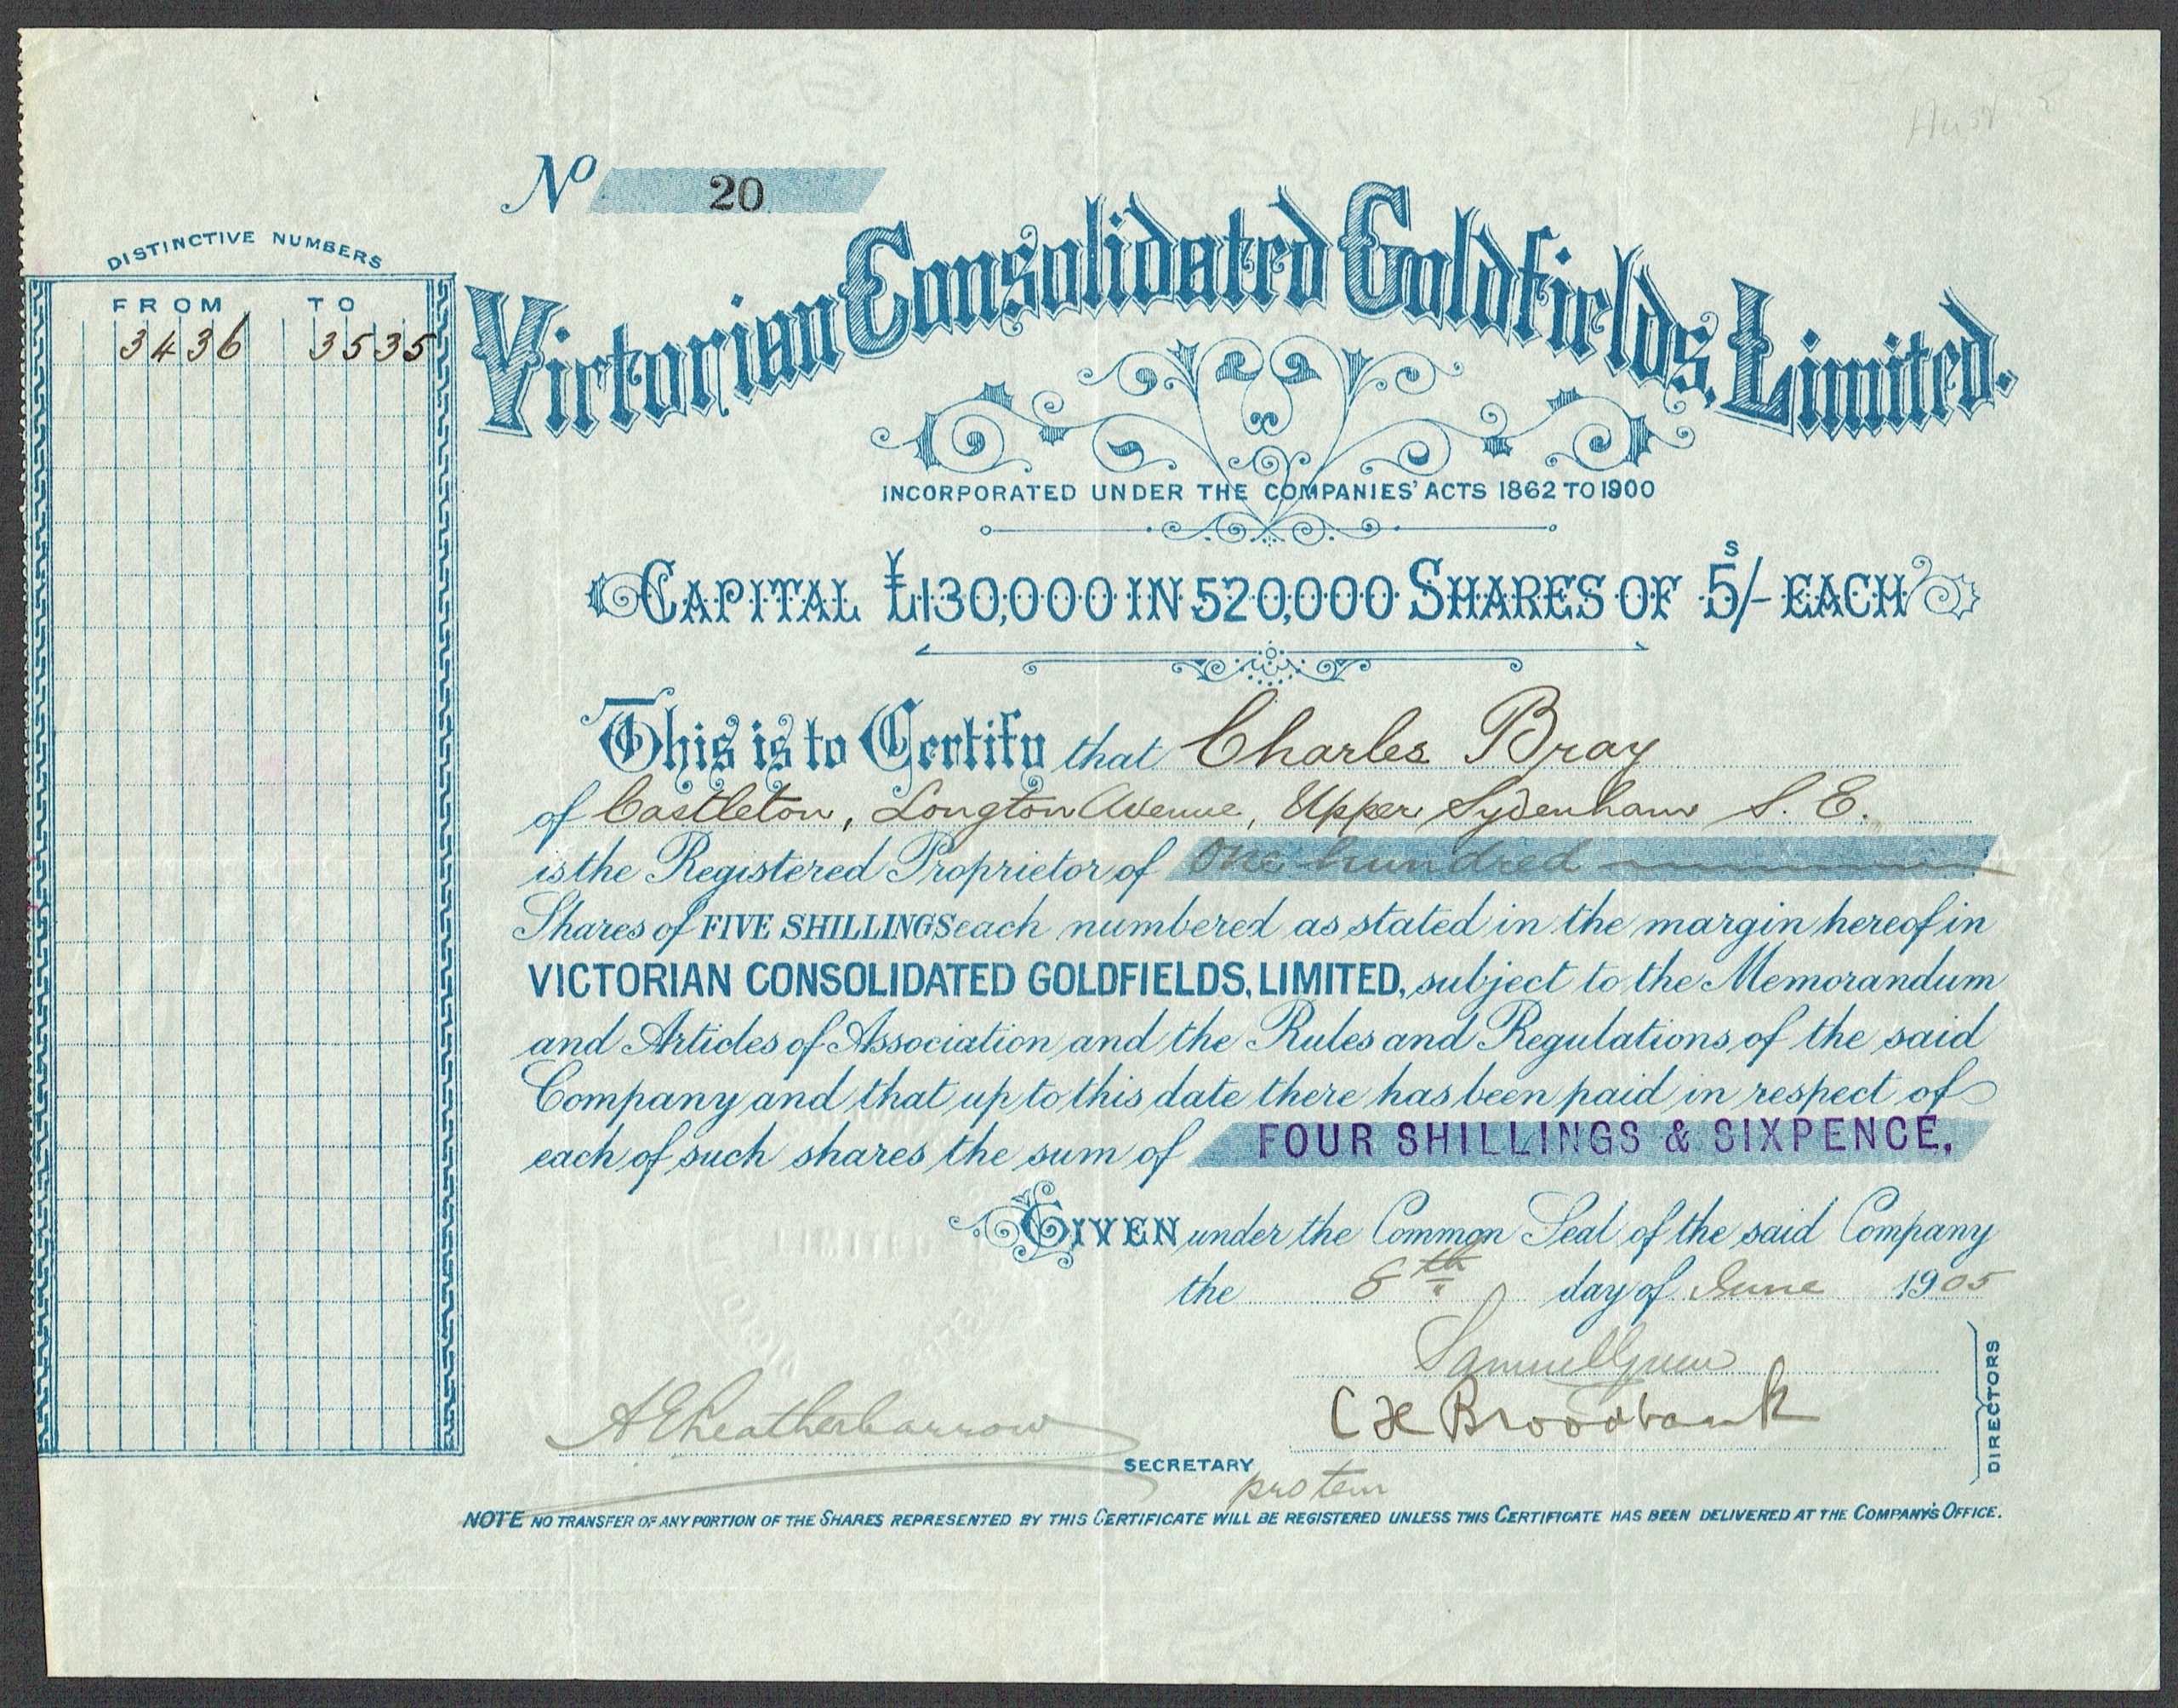 No 20
DISTINCTIVE NUMBERS
FROM TO
3436 3535
Victorian Consolidated Goldfields, Limited.
INCORPORATED UNDER THE COMPANIES' ACTS 1862 TO 1900
CAPITAL £130,000 IN 520,000 SHARES OF 5s/- EACH
This is to Certify that Charles Bray
of Castleton, Longton Avenue, Upper Sydenham S. E.
is the Registered Proprietor of One hundred
Shares of FIVE SHILLINGS each numbered as stated in the margin hereof in
VICTORIAN CONSOLIDATED GOLDFIELDS, LIMITED, subject to the Memorandum
and Articles of Association and the Rules and Regulations of the said
Company and that up to this date there has been paid in respect of
each of such shares the sum of FOUR SHILLINGS & SIXPENCE.
GIVEN under the Common Seal of the said Company
the 8th day of June 1905
Samuel
C H Broodbank
DIRECTORS
SECRETARY
pro tem
NOTE NO TRANSFER OF ANY PORTION OF THE SHARES REPRESENTED BY THIS CERTIFICATE WILL BE REGISTERED UNLESS THIS CERTIFICATE HAS BEEN DELIVERED AT THE COMPANY'S OFFICE.